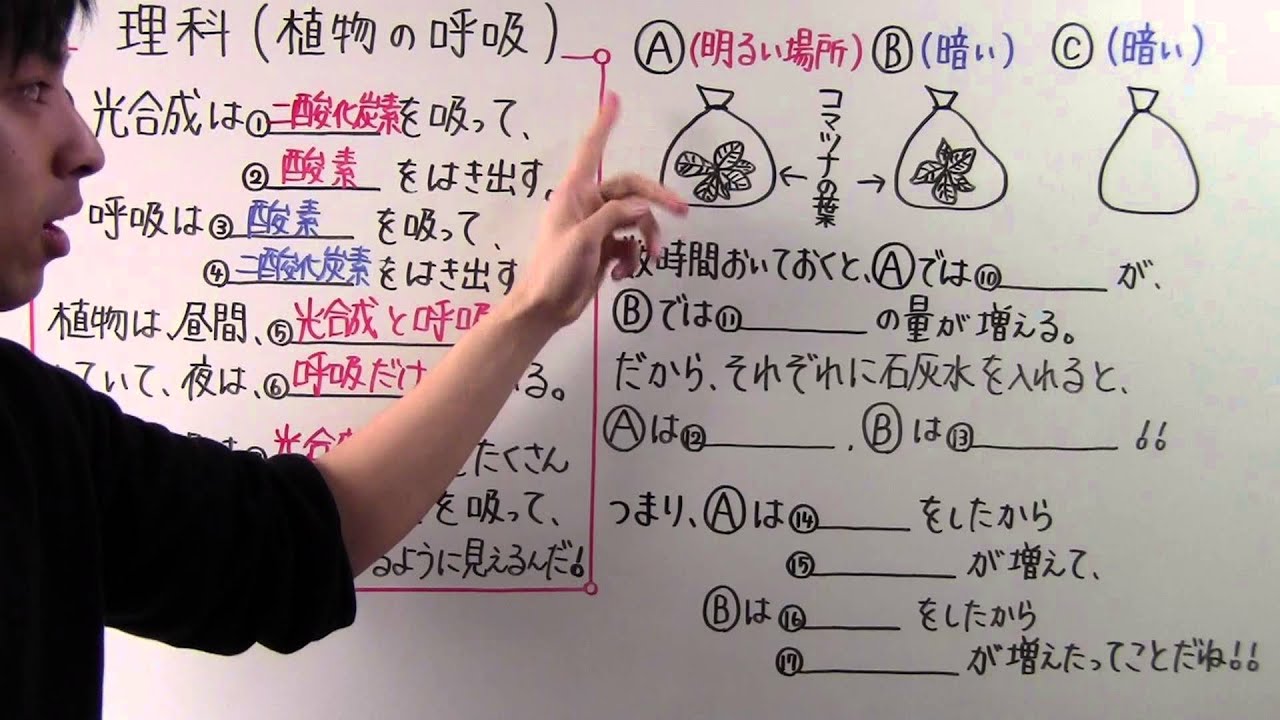 理科(植物の呼吸)
光合成は①二酸化炭素を吸って、
②酸素をはき出す。
呼吸は③酸素を吸って、
④二酸化炭素をはき出す
植物は、昼間、⑤光合成と呼吸
ていて、夜は、⑥呼吸だけ る。
光合 たくさん
を吸って、
るように見えるんだ!
Ⓐ(明るい場所) Ⓑ(暗い) Ⓒ(暗い)
←コマツナの葉→
時間おいておくと、Ⓐでは⑩______が、
Ⓑでは⑪______の量が増える。
だから、それぞれに石灰水を入れると、
Ⓐは⑫______、Ⓑは⑬______!!
つまり、Ⓐは⑭______をしたから
⑮______が増えて、
Ⓑは⑯______をしたから
⑰______が増えたってことだね!!